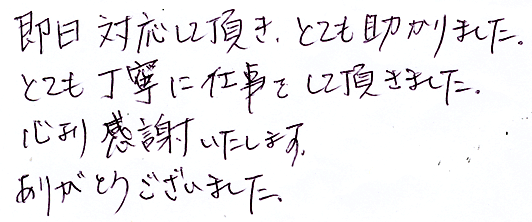 即日対応して頂き、とても助かりました。
とても丁寧に仕事をして頂きました。
心より感謝いたします。
ありがとうございました。